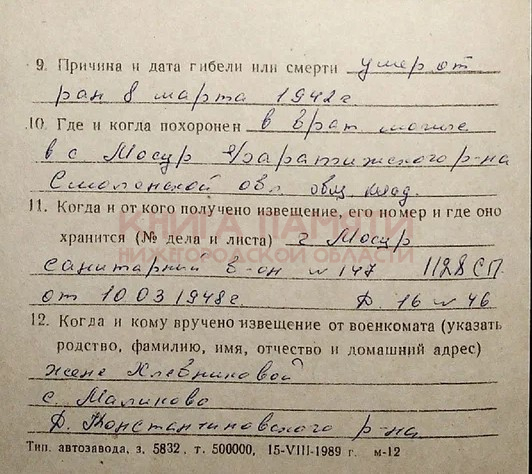 9. Причина и дата гибели или смерти умер от
ран 8 марта 1942г.
10. Где и когда похоронен в брат могиле
в с Мосур Угаратижского р-на
Смоленской обл. общ клад.
11. Когда и от кого получено извещение, его номер и где оно
КНИГА ПАМЯТИ
хранится (№ дела и листа) г Мосур
НИЖЕГОРОДСКОЙ ОБЛАСТИ
санитарный б-он № 147 1128 СП
от 10.03 1948г. Ф. 16 № 46
12. Когда и кому вручено извещение от военкомата (указать
родство, фамилию, имя, отчество и домашний адрес)
жене Хлебниковой
с. Малиново
Д. Константиновского р-на
Тип. автозавода, з. 5832, т. 500000, 15-VIII-1989 г. м-12